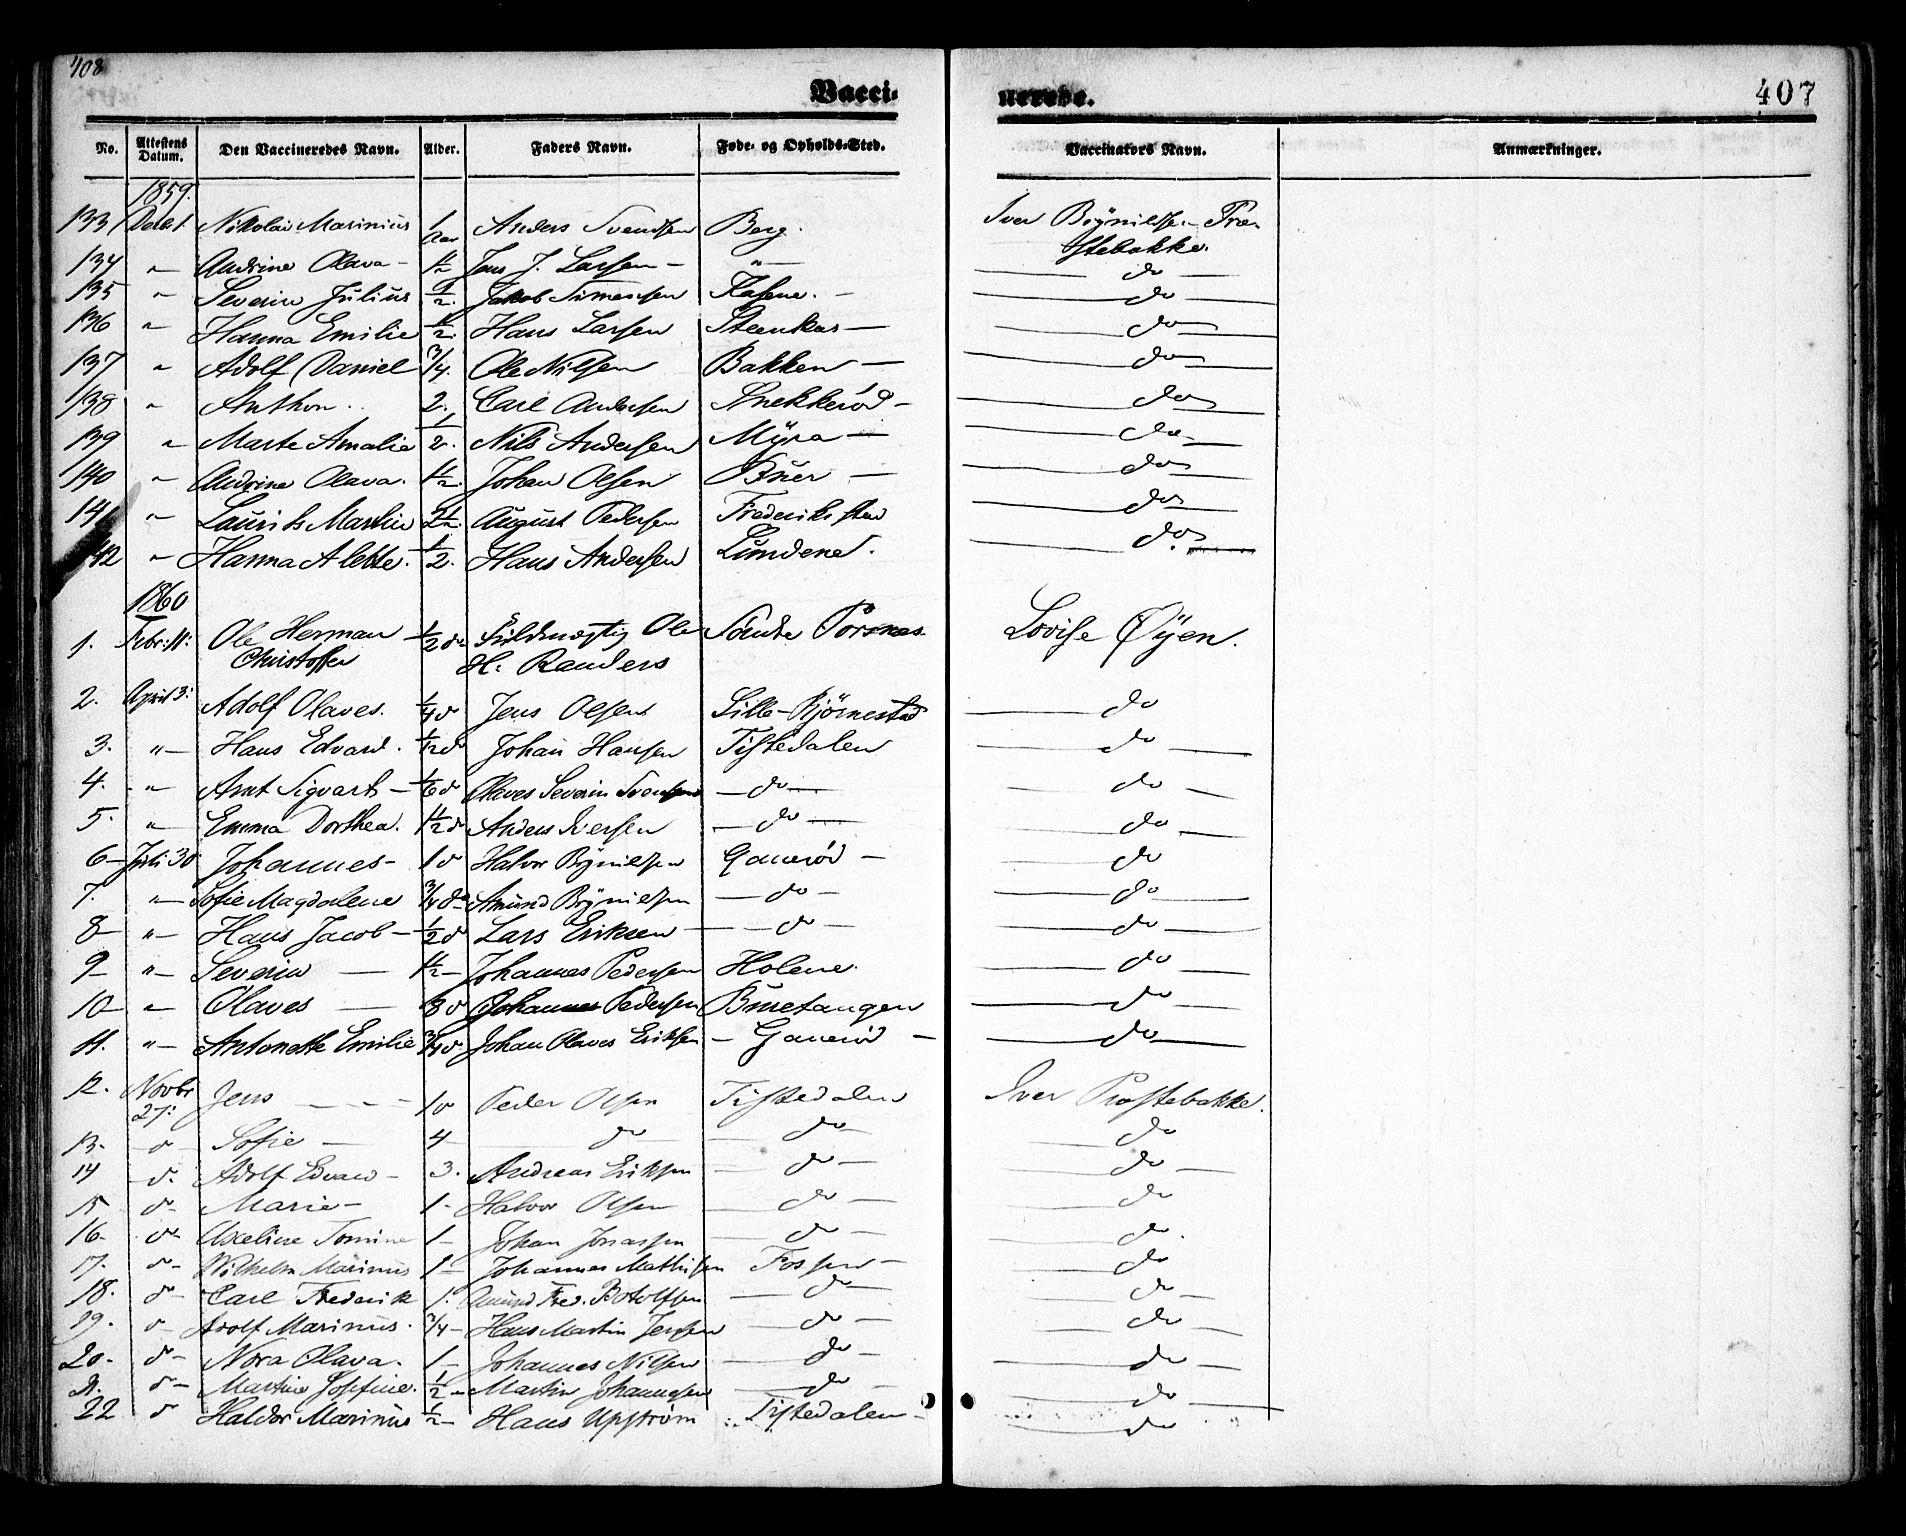 408
Vacci-
nerede.
407
No. Attestens Datum. Den Vaccineredes Navn. Alder. Faders Navn. Føde- og Opholds-Sted. Vaccinators Navn. Anmærkninger.
1859.
133 Decbr Nikolai Marinius 1 Aar Anders Svendsen Berg. Iver Brynildsen Præ-
stebakke.
134 " Andrine Olava - 1½ Jens J. Larsen - " - do -
135 " Severin Julius ½. Jakob Simensen Kasene. - do
136 " Hanna Emilie ½. Hans Larsen Steenkas - do
137 " Adolf Daniel 3/4. Ole Nilsen Bakken - do
138 " Anthon. 2. Carl Andersen Snekkerød - do
139 " Marte Amalia ½. Nils Andersen Myra - do
140 " Andrine Olava. 1½. Johan Olsen Buer - do
141 " Laurits Martin 2½. August Pedersen Frederikstad do
142 " Hanna Alette. ½. Hans Andersen Lundene. do.
1860
1. Febr: 11: Ole Herman ½ do Fuldmægtig Ole Søndre Torsnes Lovise Øyen.
Christoffer H. Randers
2. April 3: Adolf Olaves. ¼ do Jens Olsen Lille-Bjørnestad do
3. " - Hans Edvard. ½ do Johan Hansen Tistedalen do
4. " Arnt Sigvart - 1/6 do Olaves Severin Svensen - do - do -
5. " Emma Dorthea. 1½ do Anders Iversen - do - do -
6 - Juli 30 Johannes - 1 do Halvor Brynildsen Ganerød - do
7. " - Sofie Magdalene 3/4 do Amund Brynildsen - do - do
8 - " - Hans Jacob - ½ do Lars Eriksen - do - do
9 - " - Severin - 1½ - Johannes Pedersen Holene. do -
10 - " - Olaves - 3 do Johannes Pedersen Buretangen do -
11. " - Antonette Emilie 3/4 do Johan Olaves Eriksen - Ganerød - do
12. Novbr 27: Jens - - - 1 do Peder Olsen Tistedalen Iver Præstebakke.
13. do - Sofie - 4 - do do - do
14 do. Adolf Edvard - 3. Andreas Eriksen - do - do -
15 do - Marie - 1 - Halvor Olsen do - do
16 - do - Axeline Tomine 1 - Johan Jonassen do - do.
17. do - Wilhelm Marinus 1 - Johannes Mathisen Fossen - do
18. do - Carl Frederik 1. Amund Fred. Botolfsen do - do -
19. do - Adolf Marinus. 3/4 - Hans Martin Jensen do - do
20 - do - Nora Olava. 1 - Johannes Nilsen do - do -
21. do - Martine Josefine. ½ - Martin Johannesen do - do
22 do Haldor Marinus ½ - Hans Upstrøm Tistedalen - do